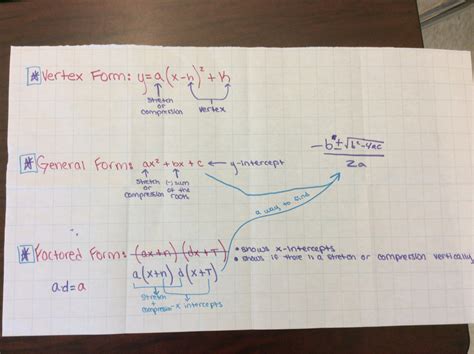 * Vertex Form: y=a(x-h)²+k
stretch or compression
vertex
-b±√b²-4ac
2a
* General Form: ax²+bx+c ← y-intercept
stretch or compression
(-) sum of the roots
a way to find
* Factored Form: (ax+n)(dx+T)
a(x+n)d(x+T)
• shows x-intercepts
• shows if there is a stretch or compression vertically
ad=a
stretch + compression
x intercepts